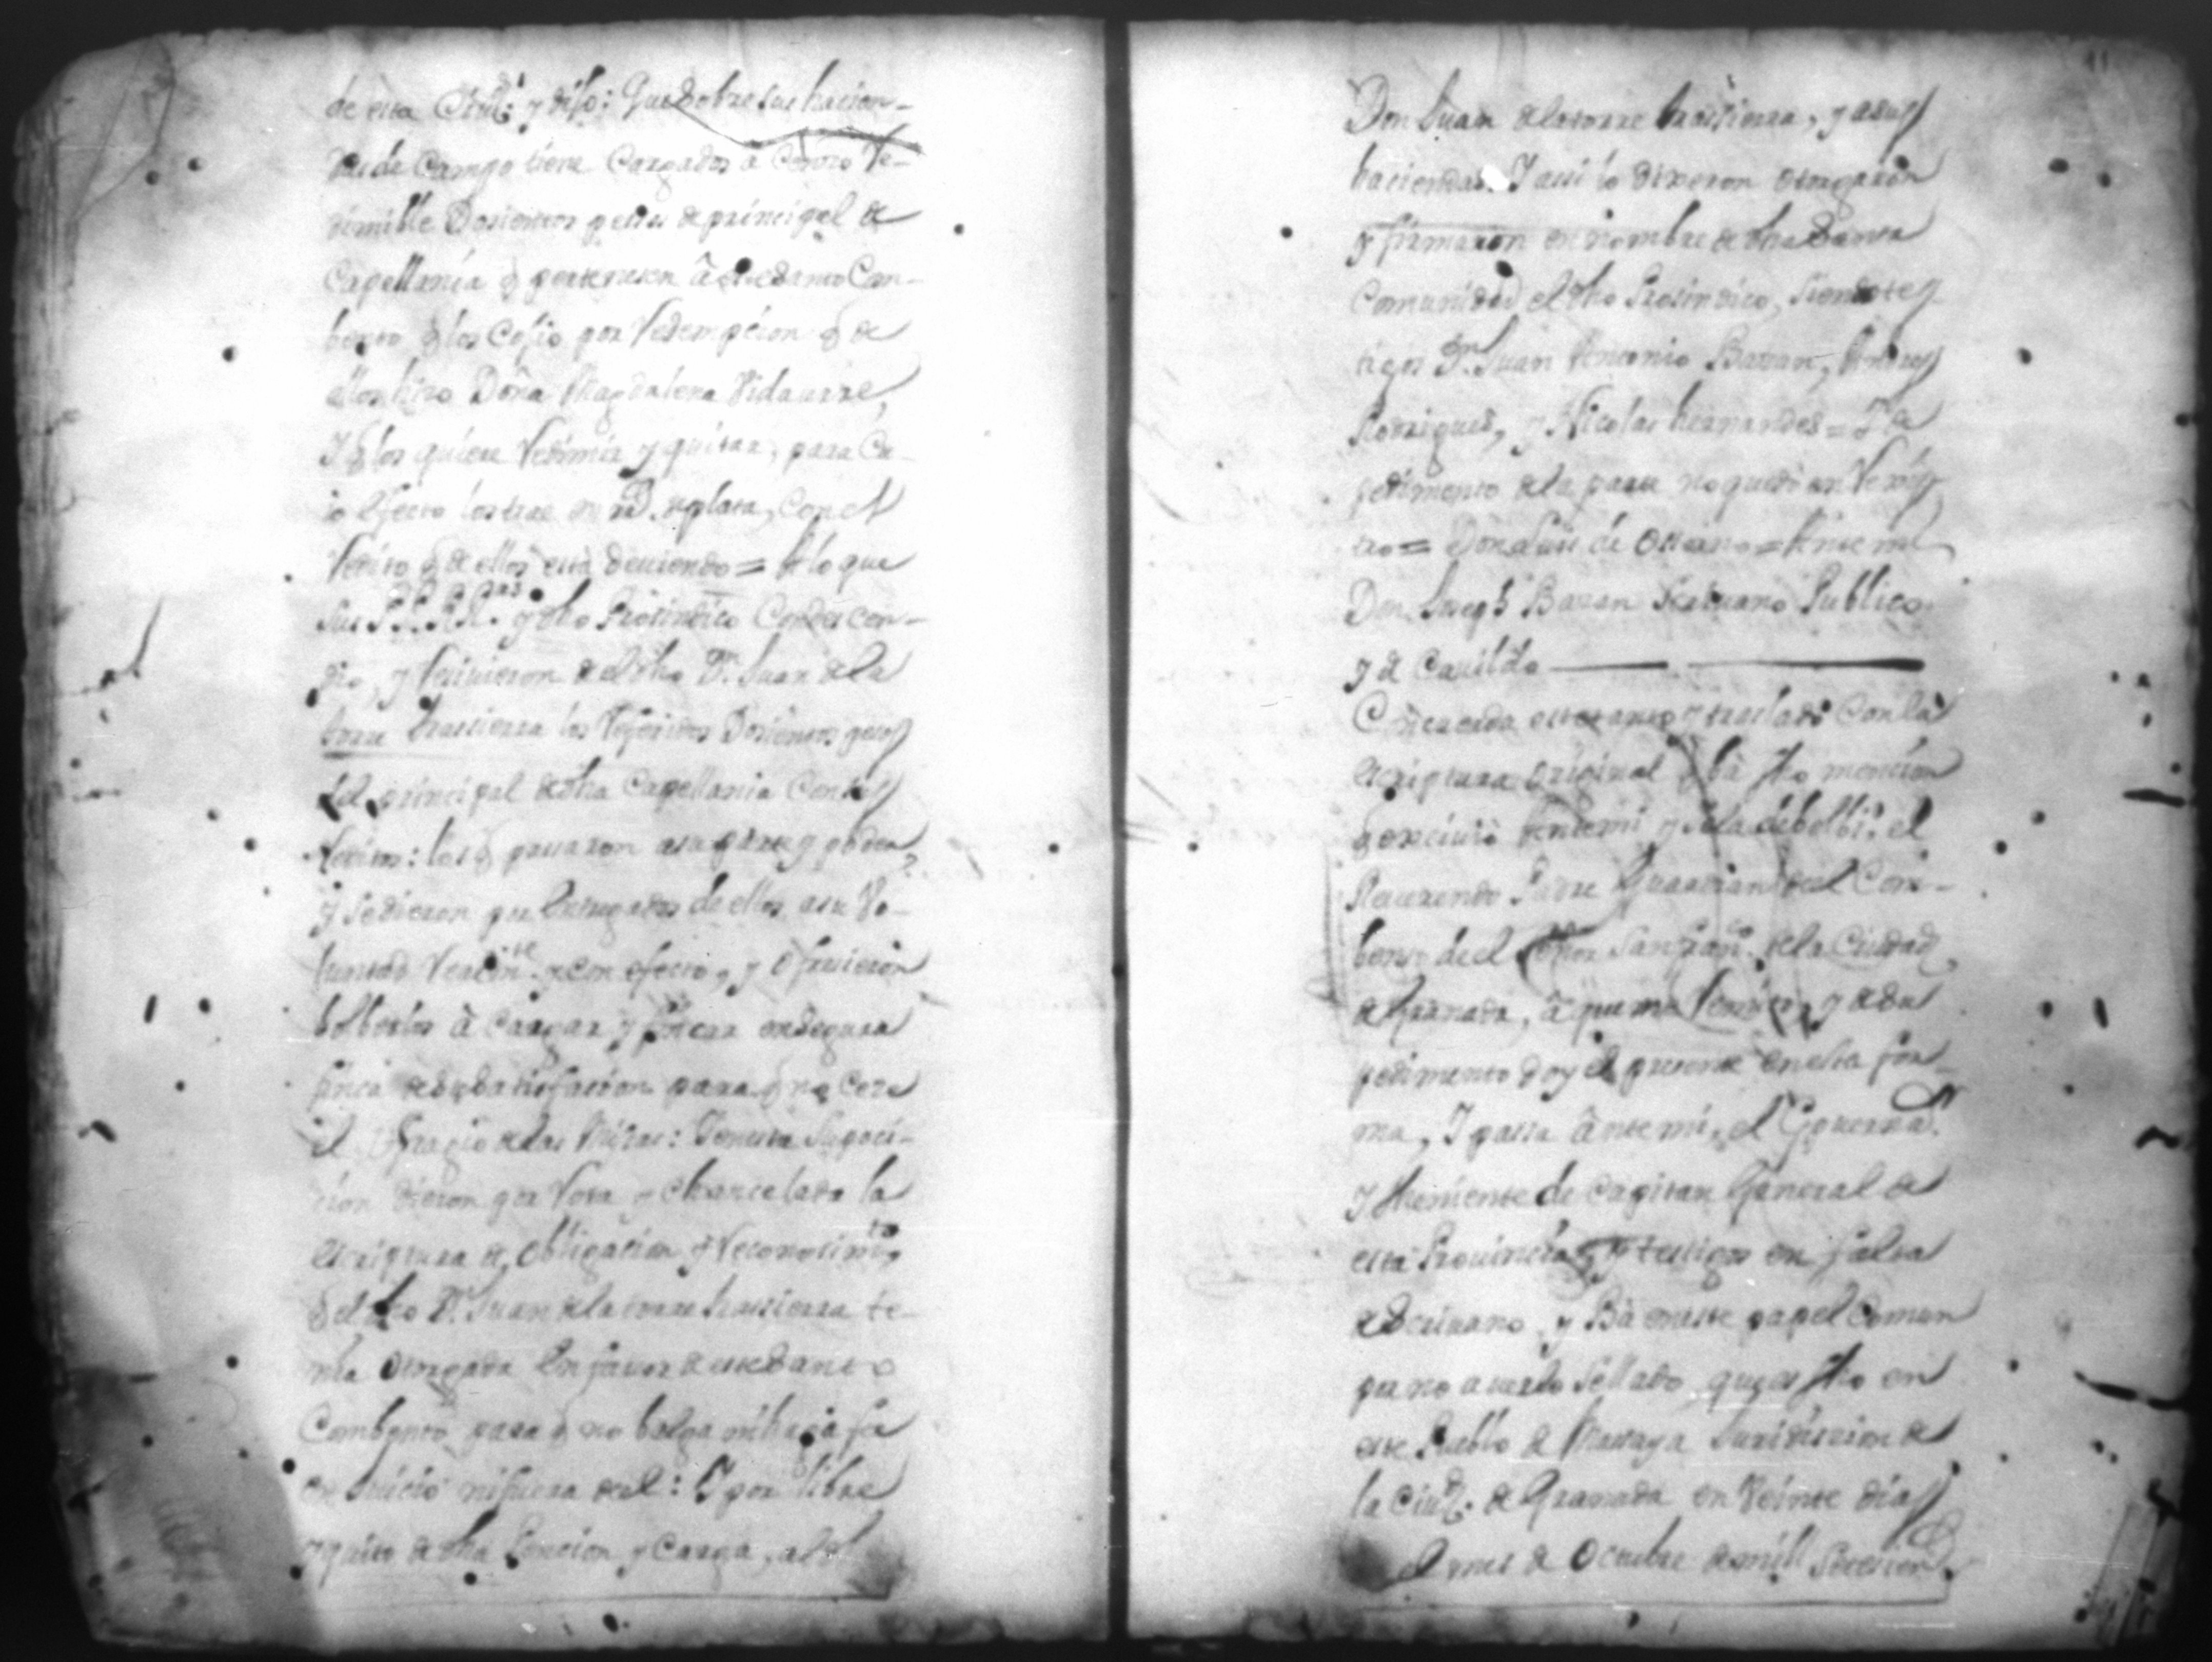 de esta Ciud. y dijo: Que Sobre sus hacien-
das de Campo tiene Cargados a Censo Re-
dimible Dosientos pessos de principal de
Capellania q pertenesen â este Santo Com-
bento q los Cojio por Redempcion q de
ellos hiso Doña Magdalena Vidaurre,
Y q los quiere Redimir y quitar, para Cu-
io efecto los trae en rs. de plata, Con el
Redito q de ellos està deuiendo = A lo que
Sus PP. RR.as y dho Prosindico Condescen-
dio, y Resiuieron de el dho Dn. Juan de la
torre trassierra los Referidos Dosientos pesos
del principal de dha Capellania Con sus
Reditos: los q passaron a su parte y poder
y se dieron por Entregados de ellos a su Vo-
luntad Realmte. y con efecto, y ofresieron
bolberlos â Cargar y fincar en segura
finca de su Satisfacion para q no Cese
el Sufragio de las Missas: Y en esta Suposi-
cion dieron por Rota y Chancelada la
escriptura de obligacion y Reconosimto.
q el dho Dn. Juan de la torre trassierra te-
nia Otorgada en fauor de este Santo
Combento para q no balga ni haga fee
en Juicio ni fuera de el: Y por libre
y quito de dha Pencion y Carga, al dho
Don Juan de la torre trassierra, y a sus
haciendas. Y assi lo dixeron otorgaron
y firmaron en nombre de dha Santa
Comunidad el dho Prosindico, siendo tes-
tigos Dn. Juan Antonio Bazan, Andres
Rodrigues, y Nicolas hernandes = Y de
pedimento de la parte no quedò en Regis-
tro = Don Luis de = Ante mi
Don Joseph Bazan Escriuano Publico
y de Cauildo
Concuerda este tanto y traslado Con la
escriptura original q bà fho mencion
q exciuiò Ante mi y se la debolbi: el
Reuerendo Padre Guardian de el Com-
bento de el Señor San Franco. de la Ciudad
de Granada, â que me Remito, y de su
pedimento doy el presente en esta for-
ma, Y passa Ânte mi, el Gouernador.
Y theniente de Capitan General de
esta Prouincia, y testigos en falta
de Escriuano, y Bà en este papel Comun
por no auerlo Sellado, que es fho en
este Pueblo de Massaya Jurisdiccion de
la Ciud. de Granada en Veinte dias
del mes de Octubre de mill Setecientos